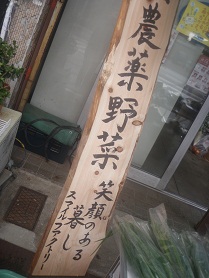 農薬野菜
笑顔のある
暮し
スマイルファクトリー